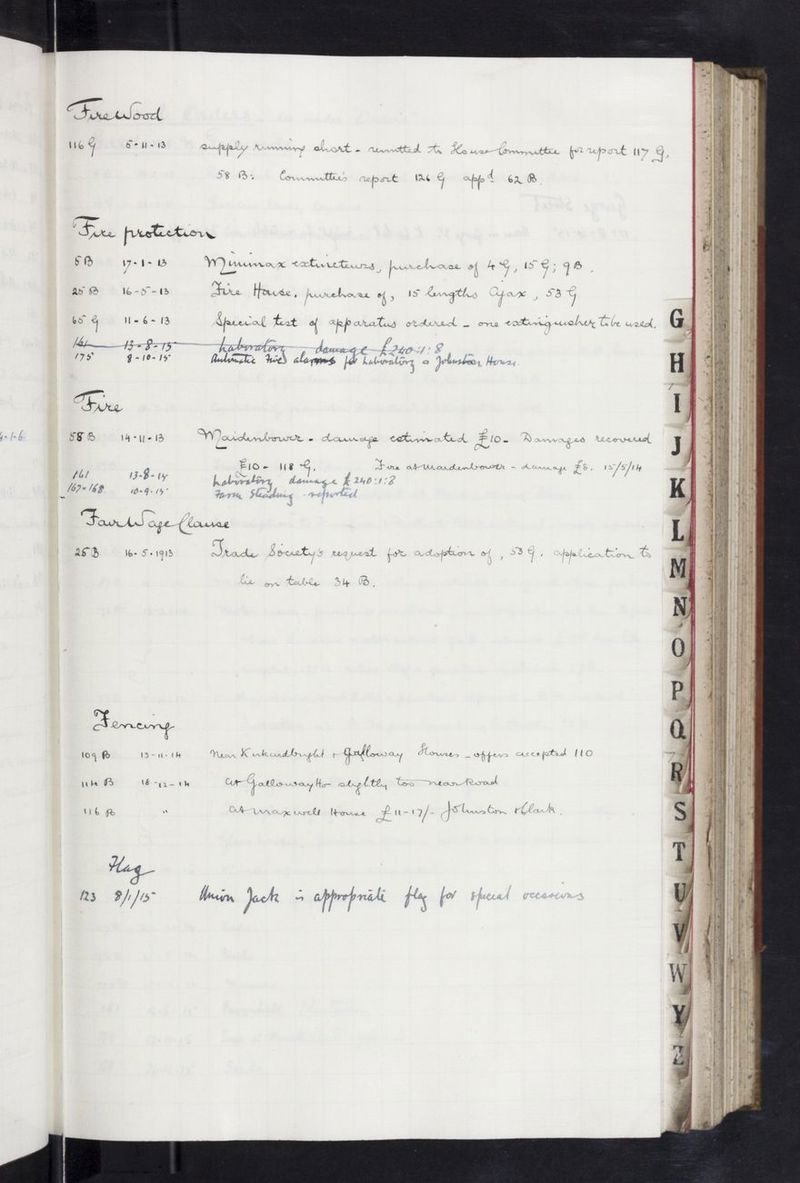 Firewood
116 G 5-11-13 supply running short - remitted to House Committee for report 117 G,
58 B; Committee's report 126 G appd 62 B.
Fire protection
5 B 17-1-13 Minimax extincteurs, purchase of 4 G, 15 G; 9 B.
25 B 16-5-13 Fire House, purchase of, 15 lengths Ajax, 53 G
65 G 11-6-13 Special test of apparatus ordered - one extinguisher to be used.
161 13-8-15 Laboratory damage £240:1:8
175 8-10-15 Automatic Fire alarms for Laboratory & Johnston House.
Fire
58 B 14-11-13 Maidenbower - damage estimated £10 - Damages recovered
£10 - 118 G. Fire at Maidenbower - damage £8. 15/5/14
161 13-8-15 Laboratory damage £240:1:8
167-168 10-9-15 Farm Steading reported
Fair Wage Clause
25 B 16-5-1913 Trade Society's request for adoption of, 53 G. application to
lie on table 34 B.
Fencing
109 B 13-11-14 Near Kirkcudbright & Galloway Houses - offers accepted 110
114 B 18-12-14 At Galloway Ho slightly too near Road
116 B " At Maxwell House £11-17/- Johnston & Clark.
Flag
123 8/1/15 Union Jack is appropriate flag for special occasions
G
H
I
J
K
L
M
N
O
P
Q
R
S
T
U
V
W
Y
Z